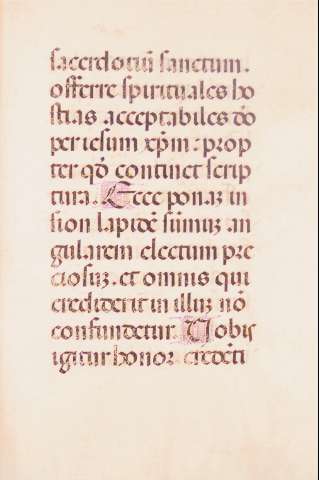 sacerdotiū sanctum.
offerre spirituales ho
stias acceptabiles dō
per iesum xp̄m : prop
ter qđ continet scrip
tura. Ecce ponaꝫ in
sion lapidē sūmuꝫ an
gularem electum pre
ciosuꝫ. et omnis qui
crediderit in illuꝫ nō
confundetur. Uobis
igitur honor credēti